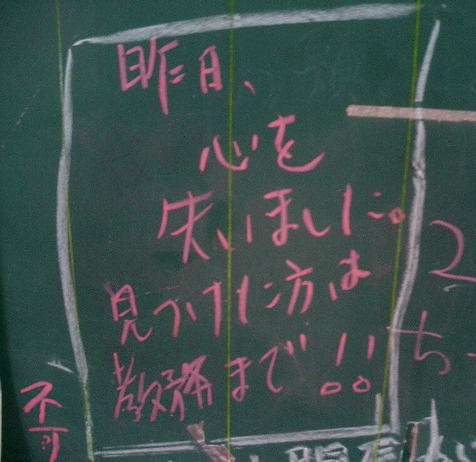 昨日、
心を
失いました。
見つけた方は
教務まで!!
不可